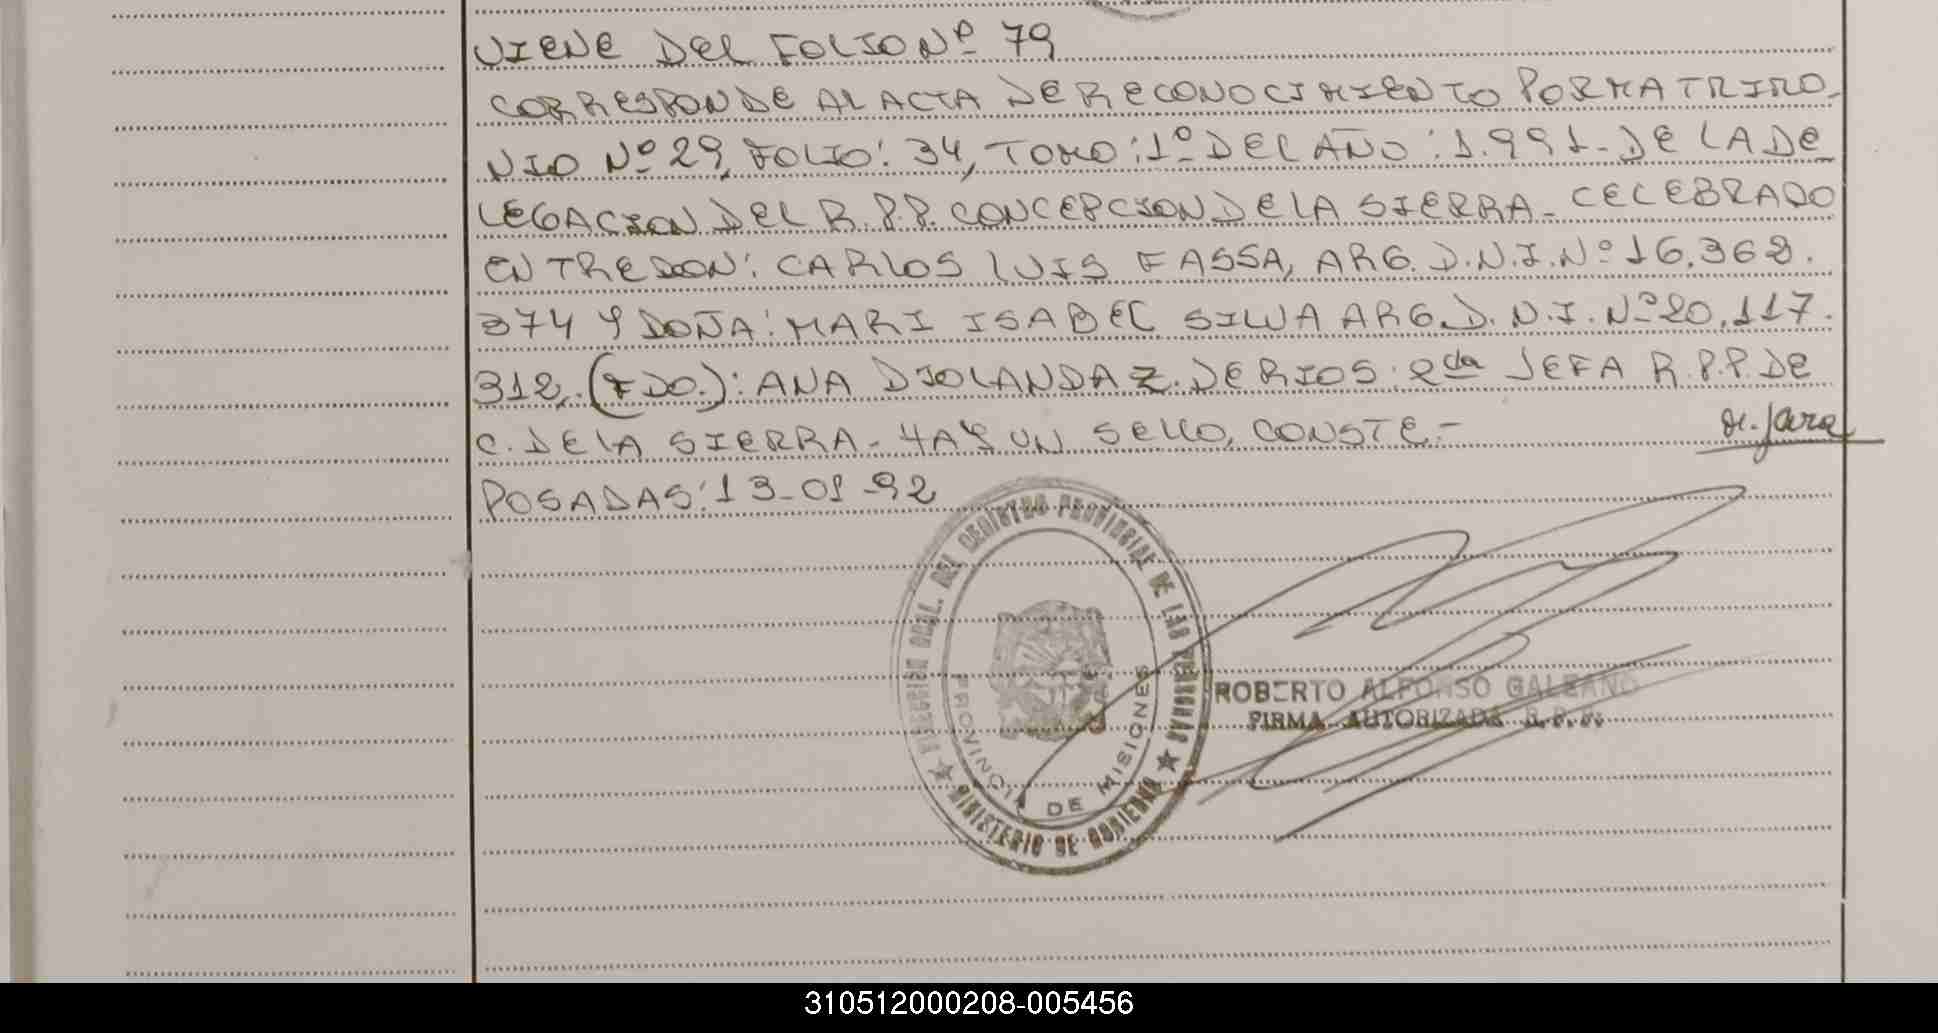 VIENE DEL FOLIO Nº 79
CORRESPONDE AL ACTA DE RECONOCIMIENTO POR MATRIMO-
NIO Nº 29, FOLIO: 34, TOMO: 1º DEL AÑO: 1.991- DE LA DE
LEGACION DEL R.P.P. CONCEPCION DE LA SIERRA- CELEBRADO
ENTRE DON: CARLOS LUIS FASSA, ARG. D.N.I. Nº 16.368.
374 Y DOÑA: MARI ISABEL SILVA ARG. D.N.I. Nº 20.117.
312,. (FDO.): ANA DIOLANDA Z. DE RIOS. 2da JEFA R.P.P. DE
C. DE LA SIERRA- HAY UN SELLO, CONSTE.-
M. Jara
POSADAS: 13-01-92
DIRECCION GRAL. DEL REGISTRO PROVINCIAL DE LAS PERSONAS
★ MINISTERIO DE GOBIERNO ★
PROVINCIA DE MISIONES
ROBERTO ALFONSO GALEANO
FIRMA AUTORIZADA R.P.P.
310512000208-005456